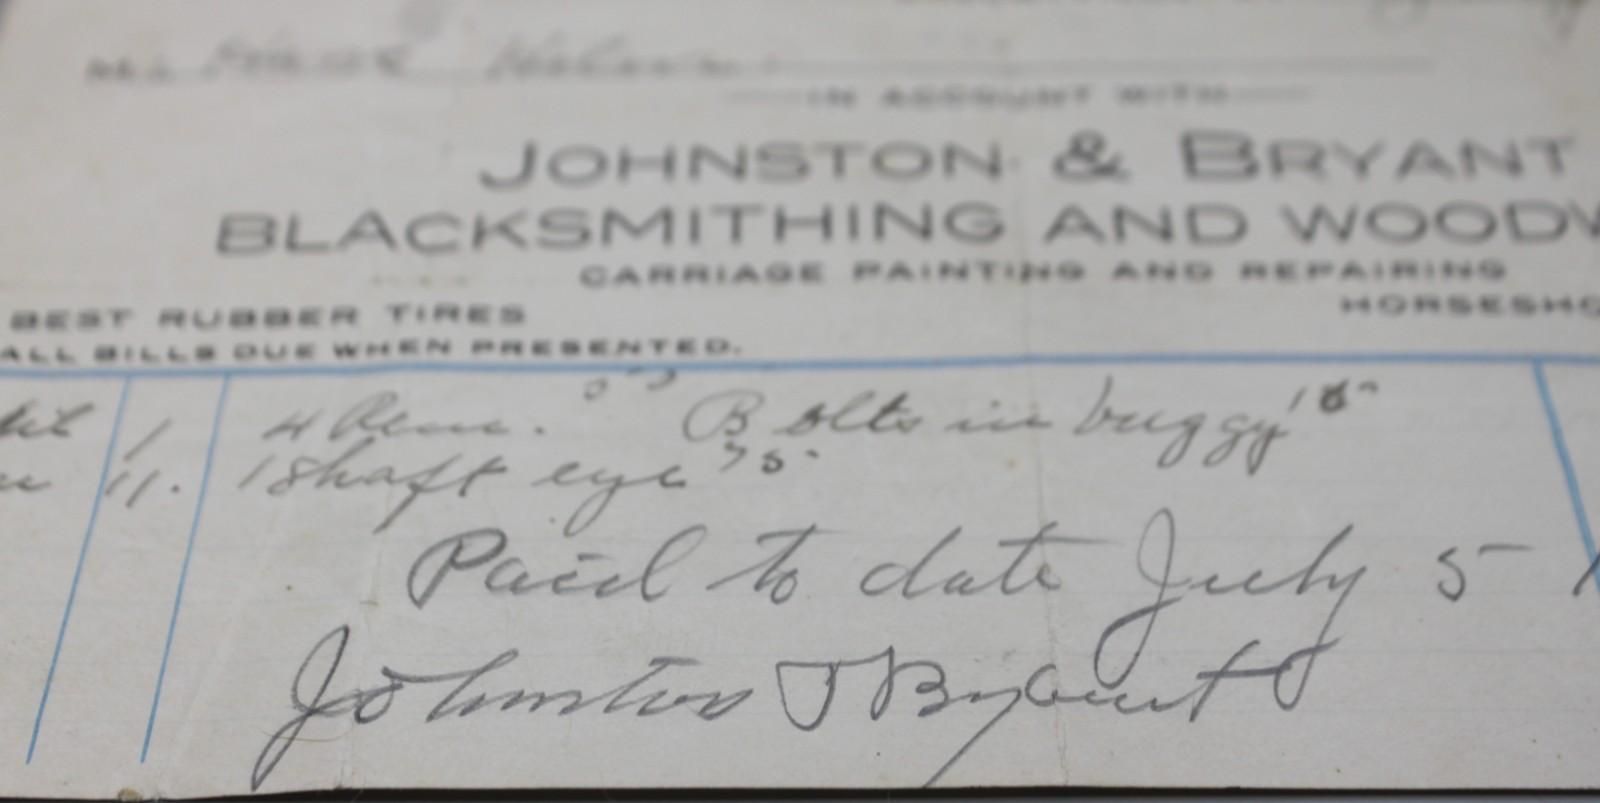 IN ACCOUNT WITH
JOHNSTON & BRYANT
BLACKSMITHING AND WOODW
CARRIAGE PAINTING AND REPAIRING
BEST RUBBER TIRES HORSESHO
ALL BILLS DUE WHEN PRESENTED.
1 4 Bolts in buggy
11. 1 Shaft eye 75
Paid to date July 5
Johnston & Bryant